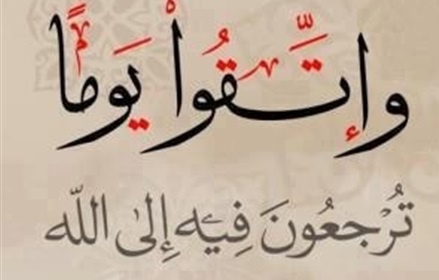 وإتَّقُواْ يَوْماً
تُرْجَعُونَ فِيهِ إِلىَ اللّه